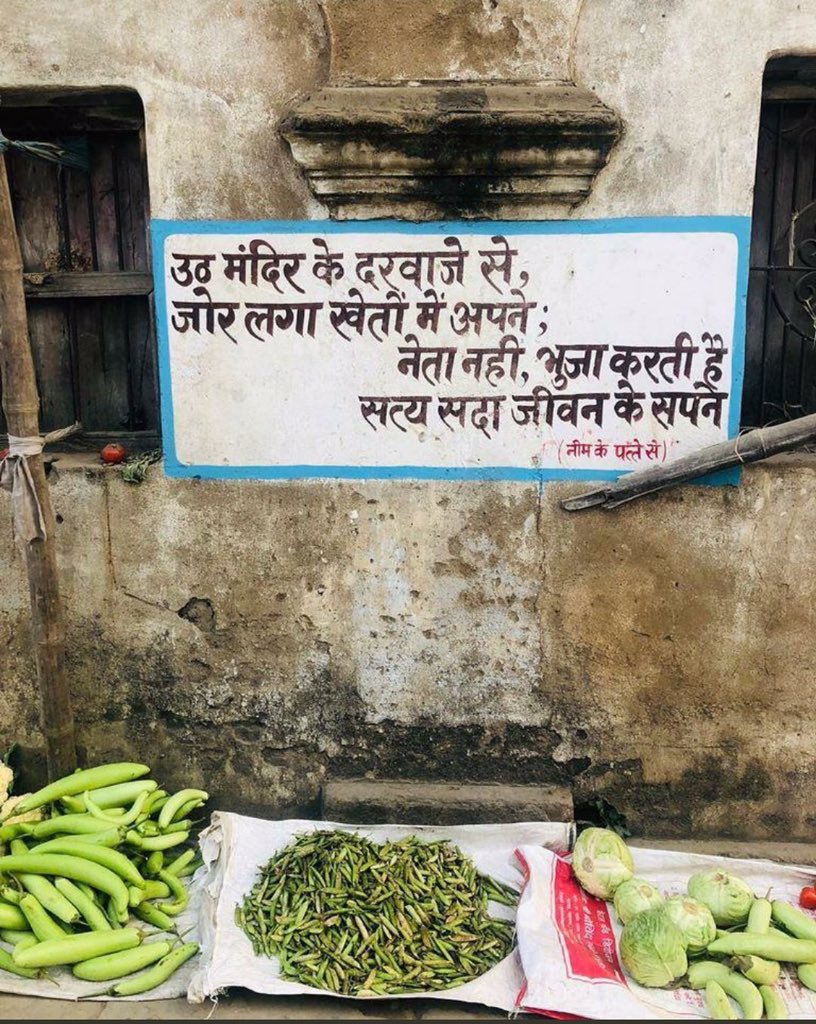 उठ मंदिर के दरवाजे से,
जोर लगा खेतों में अपने;
नेता नहीं, भुजा करती है
सत्य सदा जीवन के सपने
(नीम के पत्ते से)